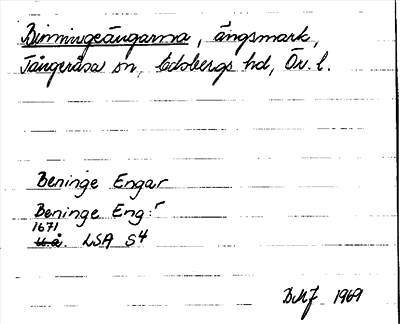 Binningeängarna, ängsmark,
Tångeråsa sn, Edsbergs hd, Ör. l.
Beninge Engar
Beninge Eng:r
1671
u.å. LSA S4
DMJ 1969